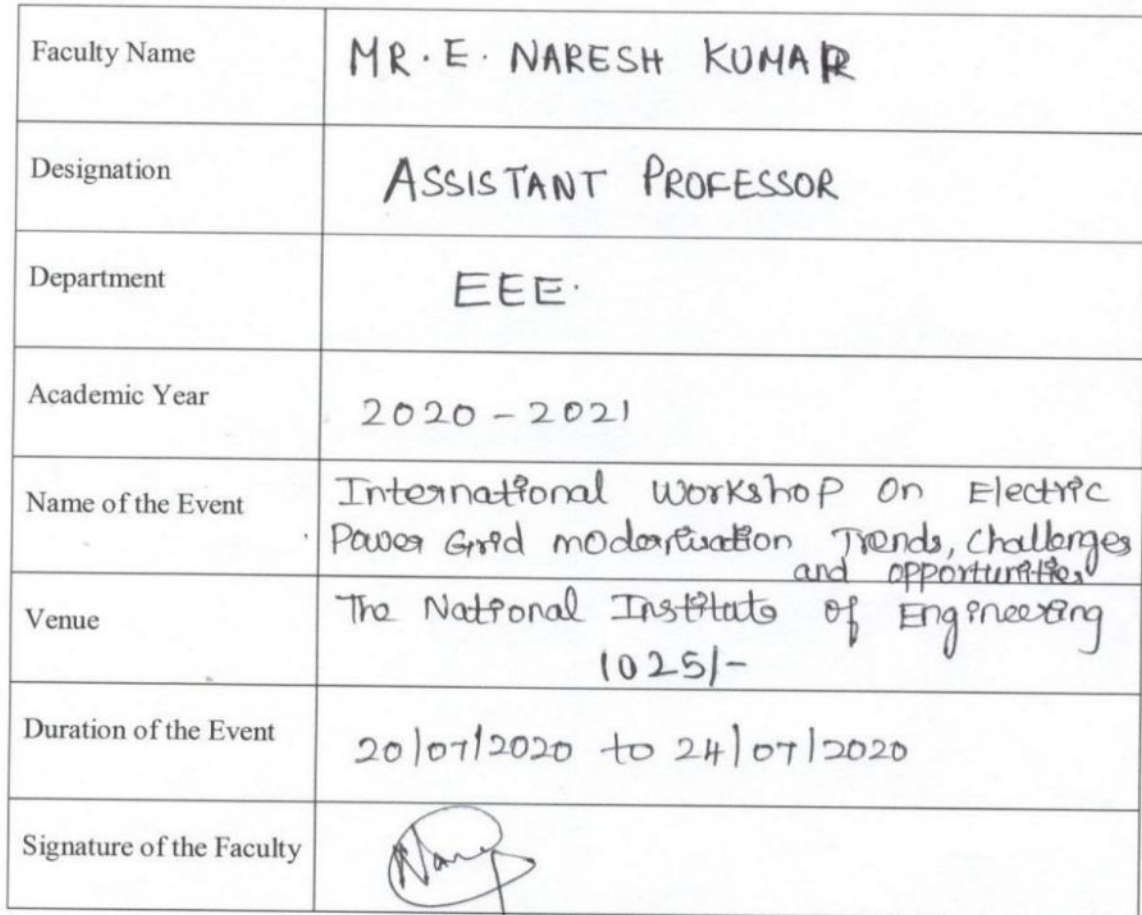 Faculty Name MR. E. NARESH KUMAR
Designation ASSISTANT PROFESSOR
Department EEE.
Academic Year 2020-2021
Name of the Event International Workshop On Electric
Power Grid modernisation Trends, Challenges
and opportunities
Venue The National Institute of Engineering
1025/-
Duration of the Event 20/07/2020 to 24/07/2020
Signature of the Faculty